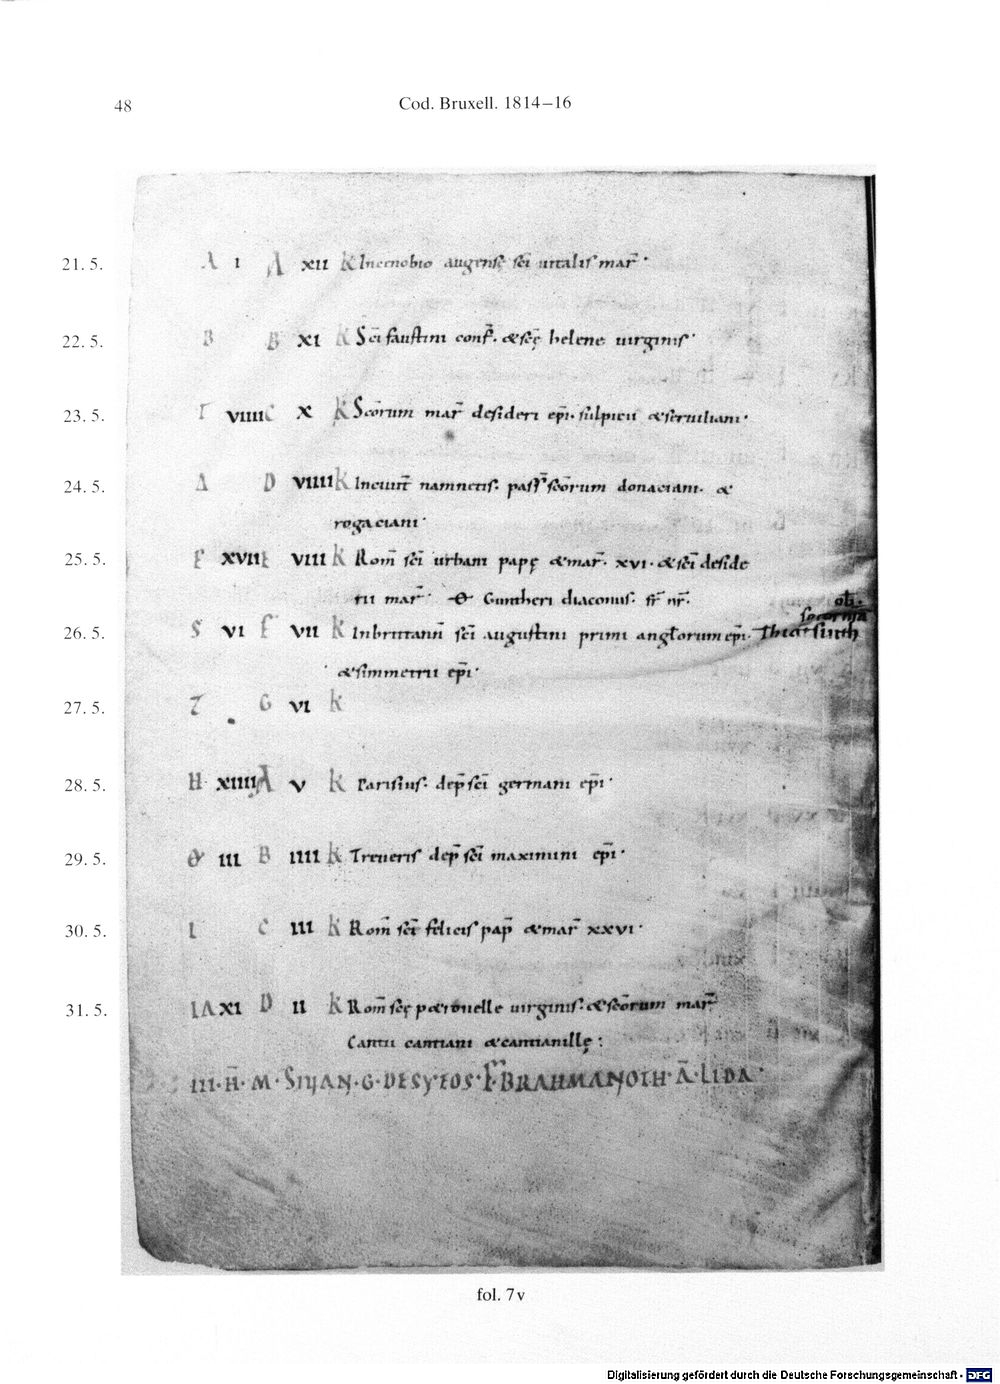 48
Cod. Bruxell. 1814–16
21. 5. A I A XII K In cenobio augense sc̄i uitalis mar̄·
22. 5. B B XI K Sc̄i faustini conf̄· & sc̄ę helene uirginis·
23. 5. VIIII C X K Sc̄orum mar̄ desideri ep̄i· sulpicii & seruiliani·
24. 5. D VIIII K In ciuit̄ namnetis· pass̄ sc̄orum donaciani· &
rogaciani·
25. 5. XVII E VIII K Rom̄ sc̄i urbani papę & mar̄· xvi· & sc̄i deside
rii mar̄· Guntheri diaconus· fr̄ nr̄·
26. 5. S VI F VII K In brittann̄ sc̄i augustini primi anglorum ep̄i·
& simmetrii ep̄i·
27. 5. T G VI K
28. 5. H XIIII A V K Parisius· dep̄ sc̄i germani ep̄i·
29. 5. III B IIII K Treueris dep̄ sc̄i maximini ep̄i·
30. 5. I C III K Rom̄ sc̄i felicis pap̄ & mar̄ xxvi·
31. 5. IA XI D II K Rom̄ sc̄ę p&ronelle uirginis· & sc̄orum mar̄
Cantii cantiani & cantianillę:
fol. 7v
Digitalisierung gefördert durch die Deutsche Forschungsgemeinschaft - DFG